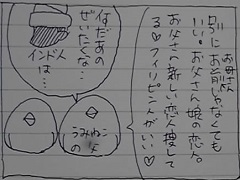 お母さん
別にお前じゃなくても
いい。お父さん娘の恋人。
お父さん新しい恋人捜して
る♡フィリピンがいい♡
何だあの
ぜいたくな…
インド人
は…
うみねこ
の